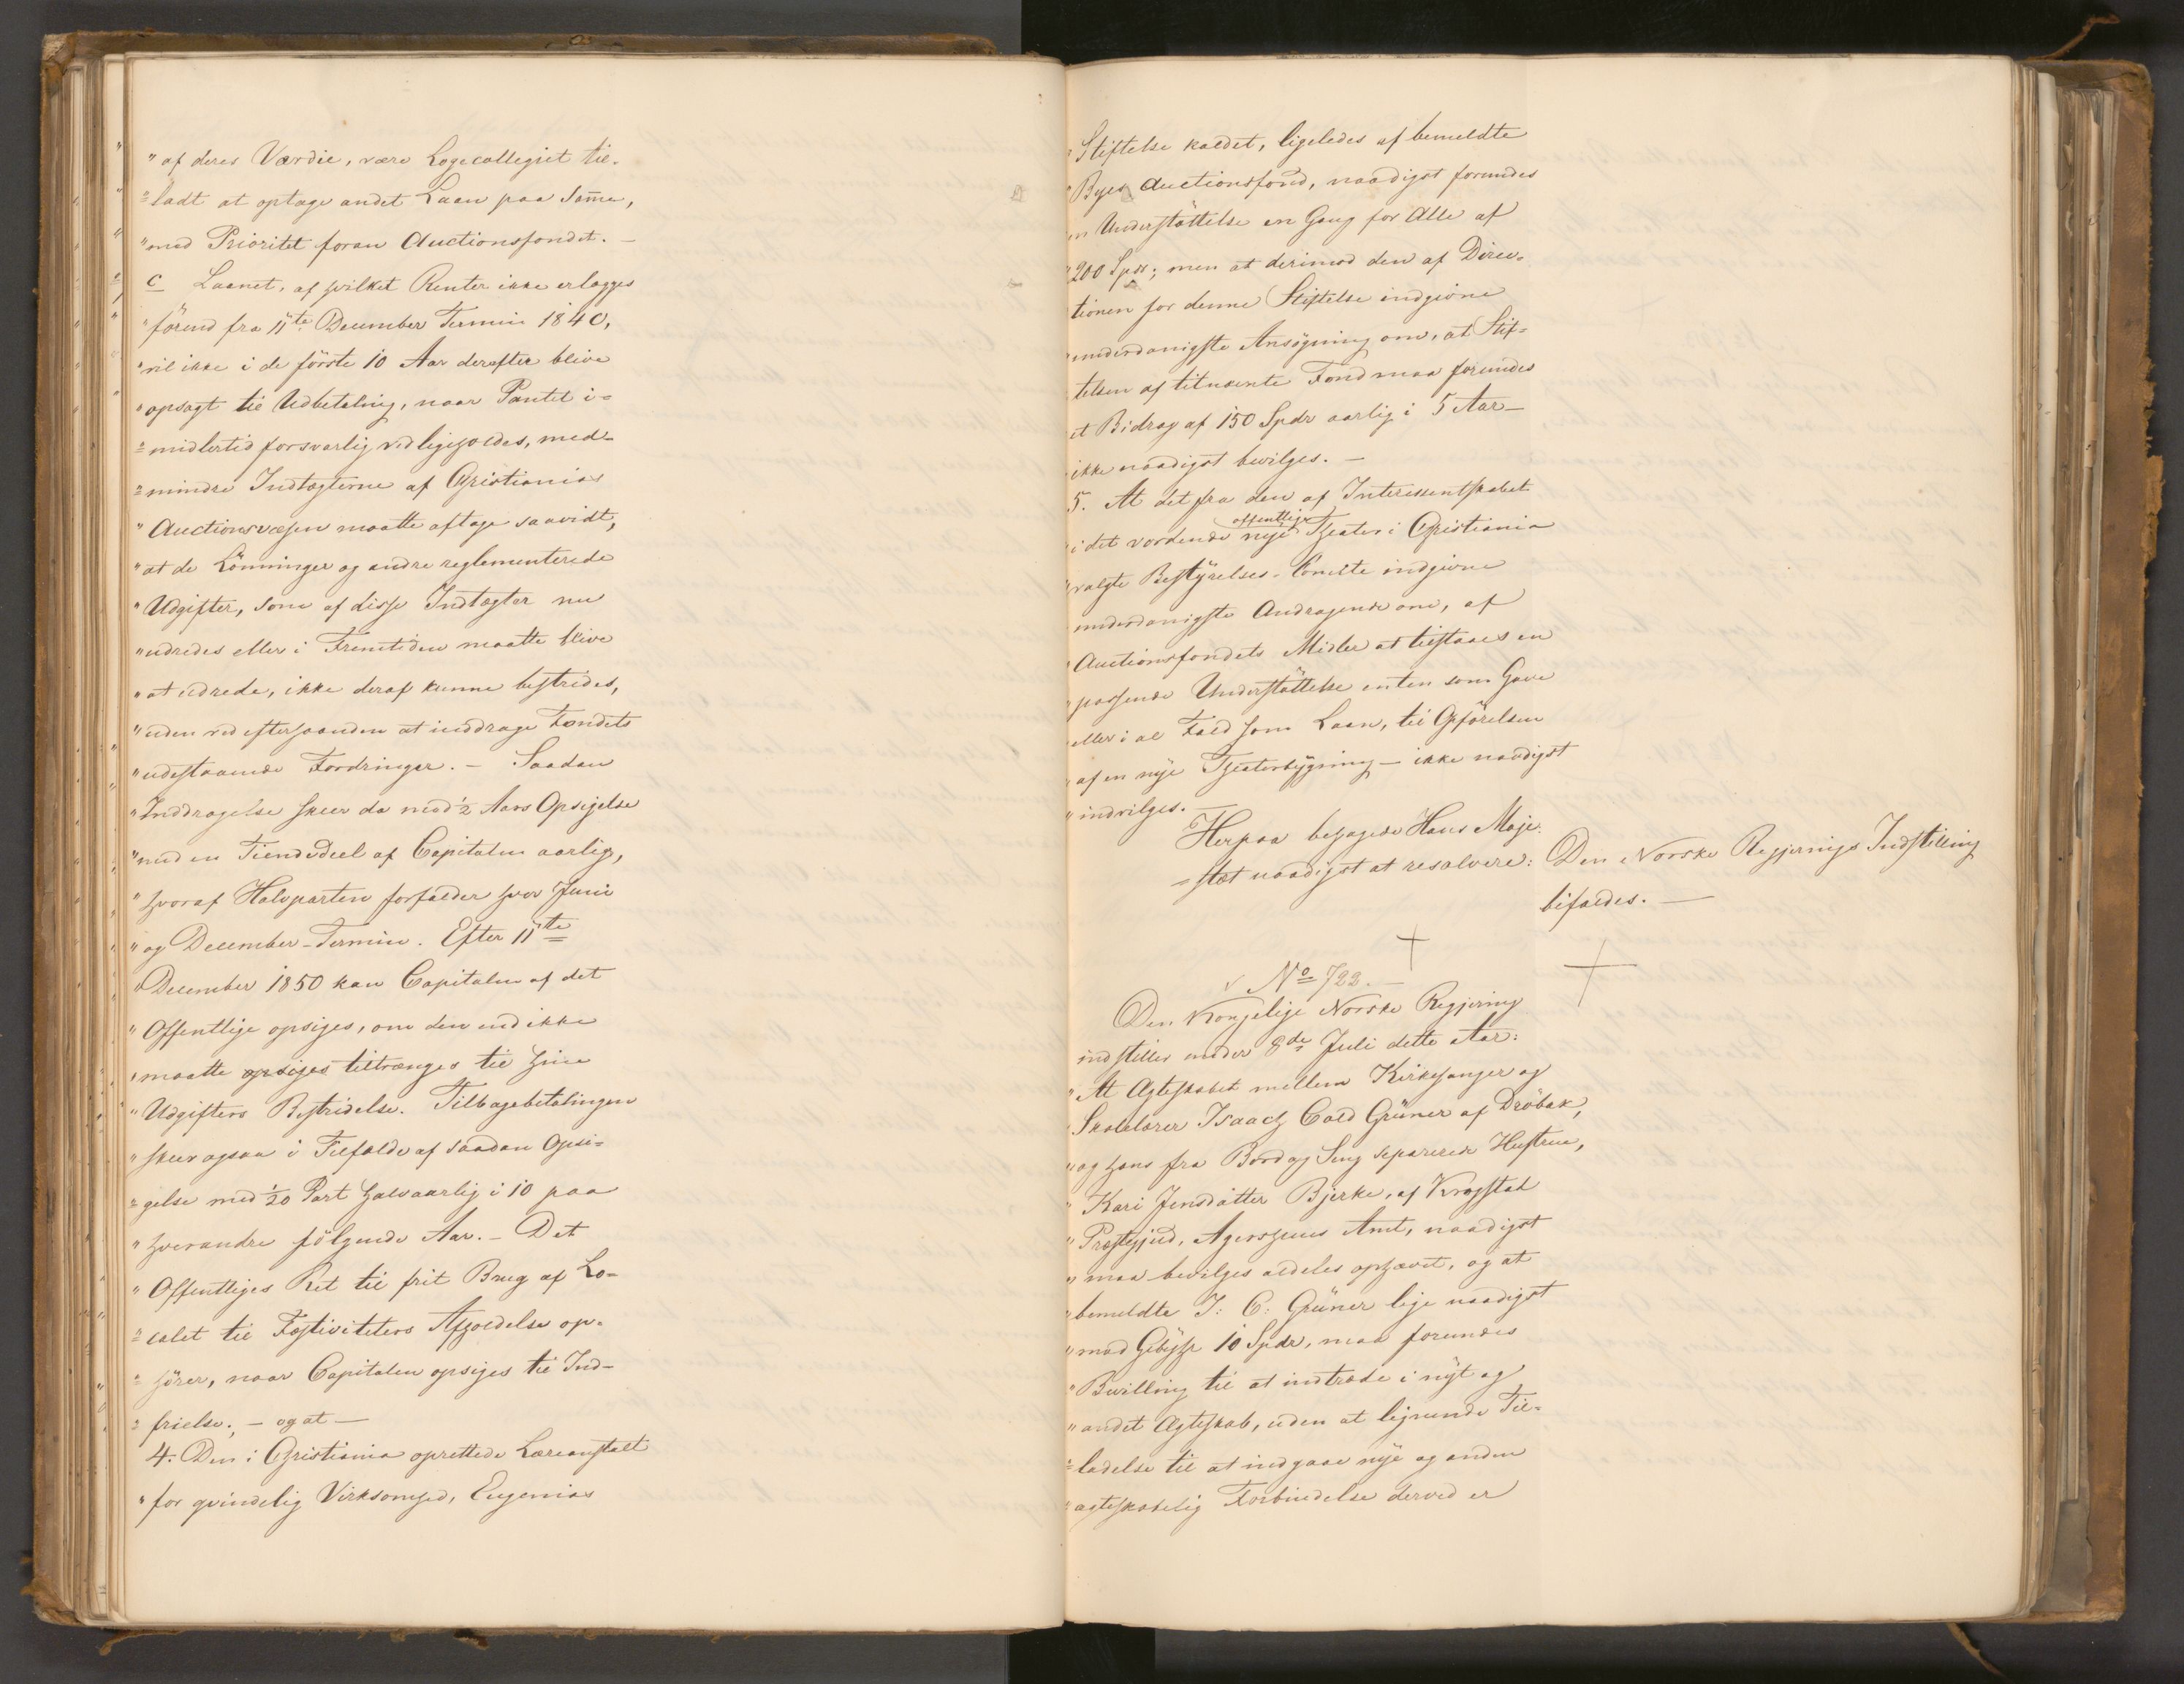 " af deres Værdie, være Logecollegiet til-
= ladt at optage andet Laan paa Samme,
" med Prioritet foran Auctionsfondet. —
" c Laanet, af hvilket Renter ikke erlægges
" förend fra 11te December Termin 1840,
" vil ikke i de förste 10 Aar derefter blive
" opsagt til Udbetaling, naar Pantet i-
= midlertid forsvarlig vedligeholdes, med-
= mindre Indtægterne af Christianias
" Auctionsvæsen maatte aftage saavidt,
" at de Lönninger og andre reglementerede
" Udgifter, som af disse Indtægter nu
" udredes eller i Fremtiden maatte blive
" at udrede, ikke deraf kunne bestrides,
" uden ved efterhaanden at inddrage Fondets
" udestaaende Fordringer. — Saadan
" Inddragelse skeer da med ½ Aars Opsigelse
" med en Tiendedeel af Capitalen aarlig,
" hvoraf Halvparten forfalder hver Juni
" og December-Termin. Efter 11te
" December 1850 kan Capitalen af det
" Offentlige opsiges, om den end ikke
" maatte opsiges tiltrænges til hine
" Udgifters Bestridelse. Tilbagebetalingen
" skeer ogsaa i Tilfælde af saadan Opsi-
= gelse med 1/20 Part halvaarlig i 10 paa
" hverandre fölgende Aar. — Det
" Offentliges Ret til frit Brug af Lo-
= calet til Festiviteters Afholdelse op-
= hörer, naar Capitalen opsiges til Ind-
= frielse; — og at —
4. Den i Christiania oprettede Læreanstalt
" for qvindelig Virksomhed, Eugenias
" Stiftelse kaldet, ligeledes af bemeldte
" Byes Auctionsfond, naadigst forundes
en Understöttelse en Gang for Alle af
" 200 Spdr; men at derimod den af Direc-
tionen for denne Stiftelse indgivne
" underdanigste Ansögning om, at Stif-
telsen af titnævnte Fond maa forundes
et Bidrag af 150 Spdr aarlig i 5 Aar —
ikke naadigst bevilges. —
5. At det fra den af Interessentskabet
offentlige
" i det vordende nye Theater i Christiania
" valgte Bestyrelses-Comite indgivne
underdanigste Andragende om, af
" Auctionsfondets Midler at tilstaaes en
" passende Understöttelse enten som Gave
" eller i al Fald som Laan, til Opförelsen
" af en nye Theaterbygning — ikke naadigst
" indvilges. —
Herpaa behagede Hans Maje-
= stæt naadigst at resolvere: Den Norske Regjerings Indstilling
bifaldes. —
No 723. —
Den Kongelige Norske Regjering
indstiller under 8de Juli dette Aar:
" At Ægteskabet mellem Kirkesanger og
" Skolelærer Isaach Cold Grüner af Dröbak,
" og hans fra Bord og Seng separerede Hustrue,
" Kari Jensdatter Bjerke, af Krogstad
" Præstegjeld, Agershuus Amt, naadigst
" maa bevilges aldeles ophævet, og at
" bemeldte I: C: Grüner lige naadigst
" mod Gebyhr 10 Spdr, maa forundes
" Bevilling til at indtræde i nyt og
" andet Ægteskab, uden at lignende Til-
= ladelse til at indgaae nye og anden
" ægteskabelig Forbindelse derved er